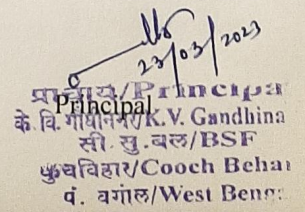 23/03/2023
प्राचार्य/Principa
Principal
के. वि. गाँधीनगर/K.V. Gandhina
सी. सु. बल/BSF
कुचविहार/Cooch Behar
पं. बगाल/West Beng